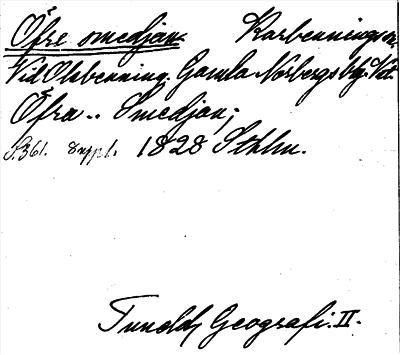 Öfre smedjan. Karbennings sn.
Vid Olsbenning. Gamla Norbergs bg. Vstm.
Öfra .. Smedjan;
S. 361. suppl. 1828 Sthlm.
Tunelds Geografi. II.